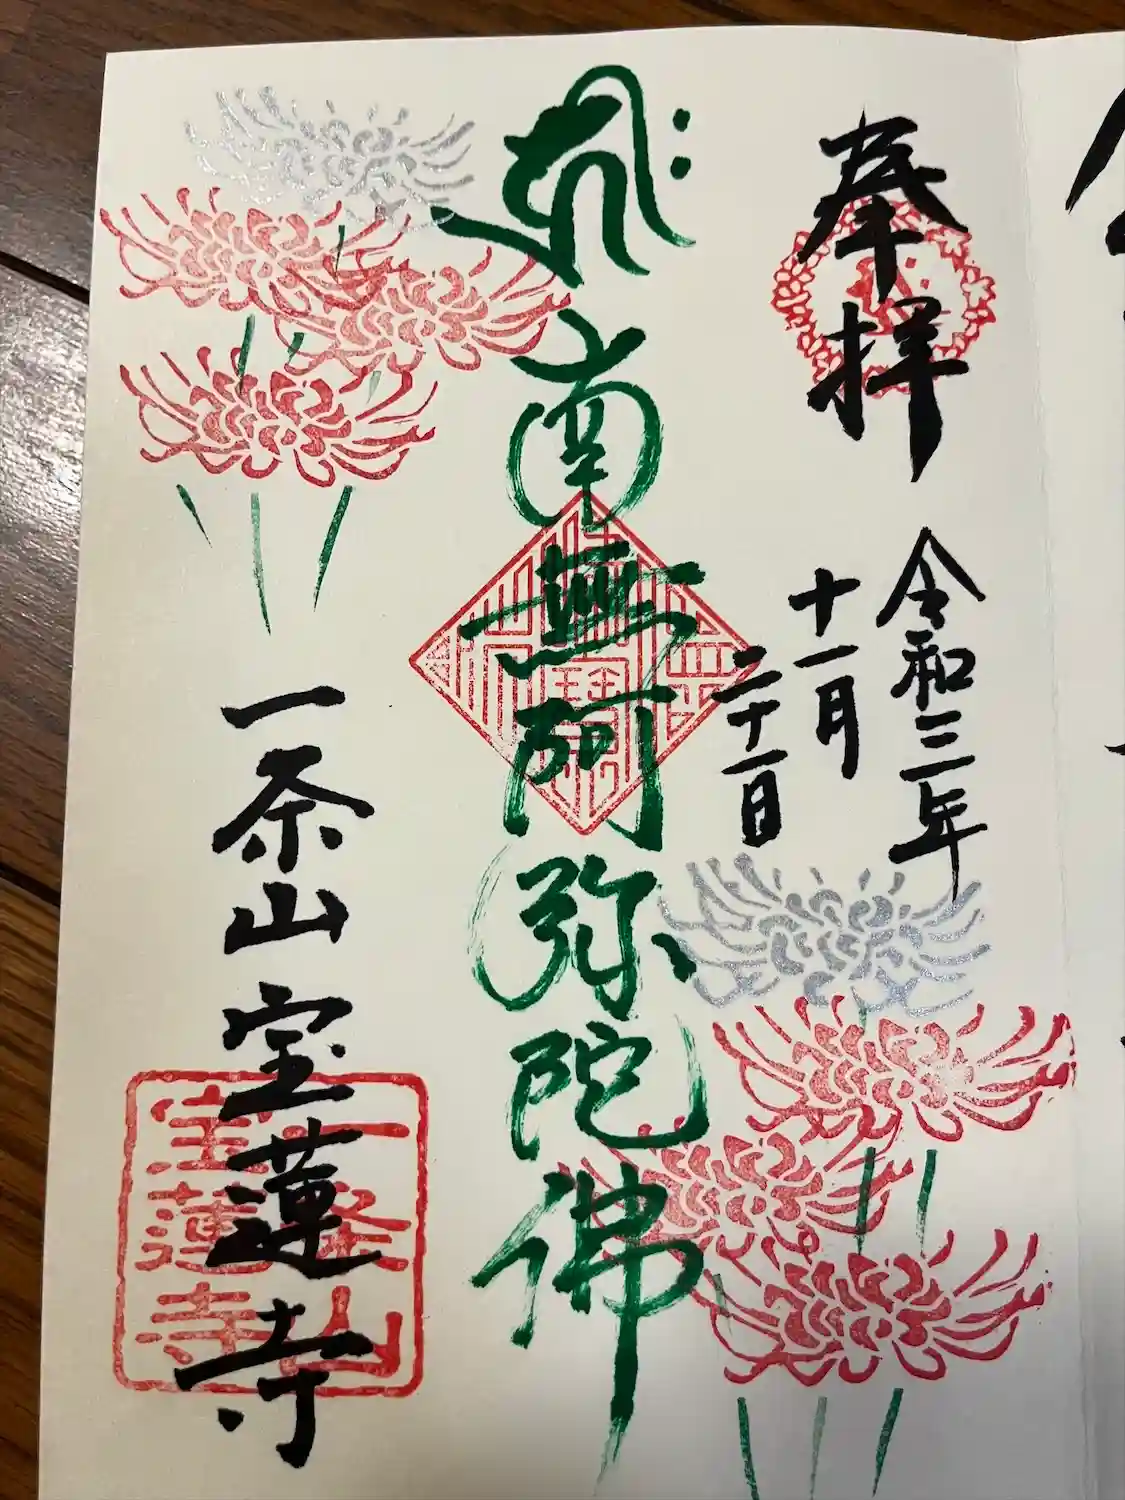 奉拝
令和三年
十一月
二十一日
南無阿弥陀佛
一条山 宝蓮寺
一条山
宝蓮寺